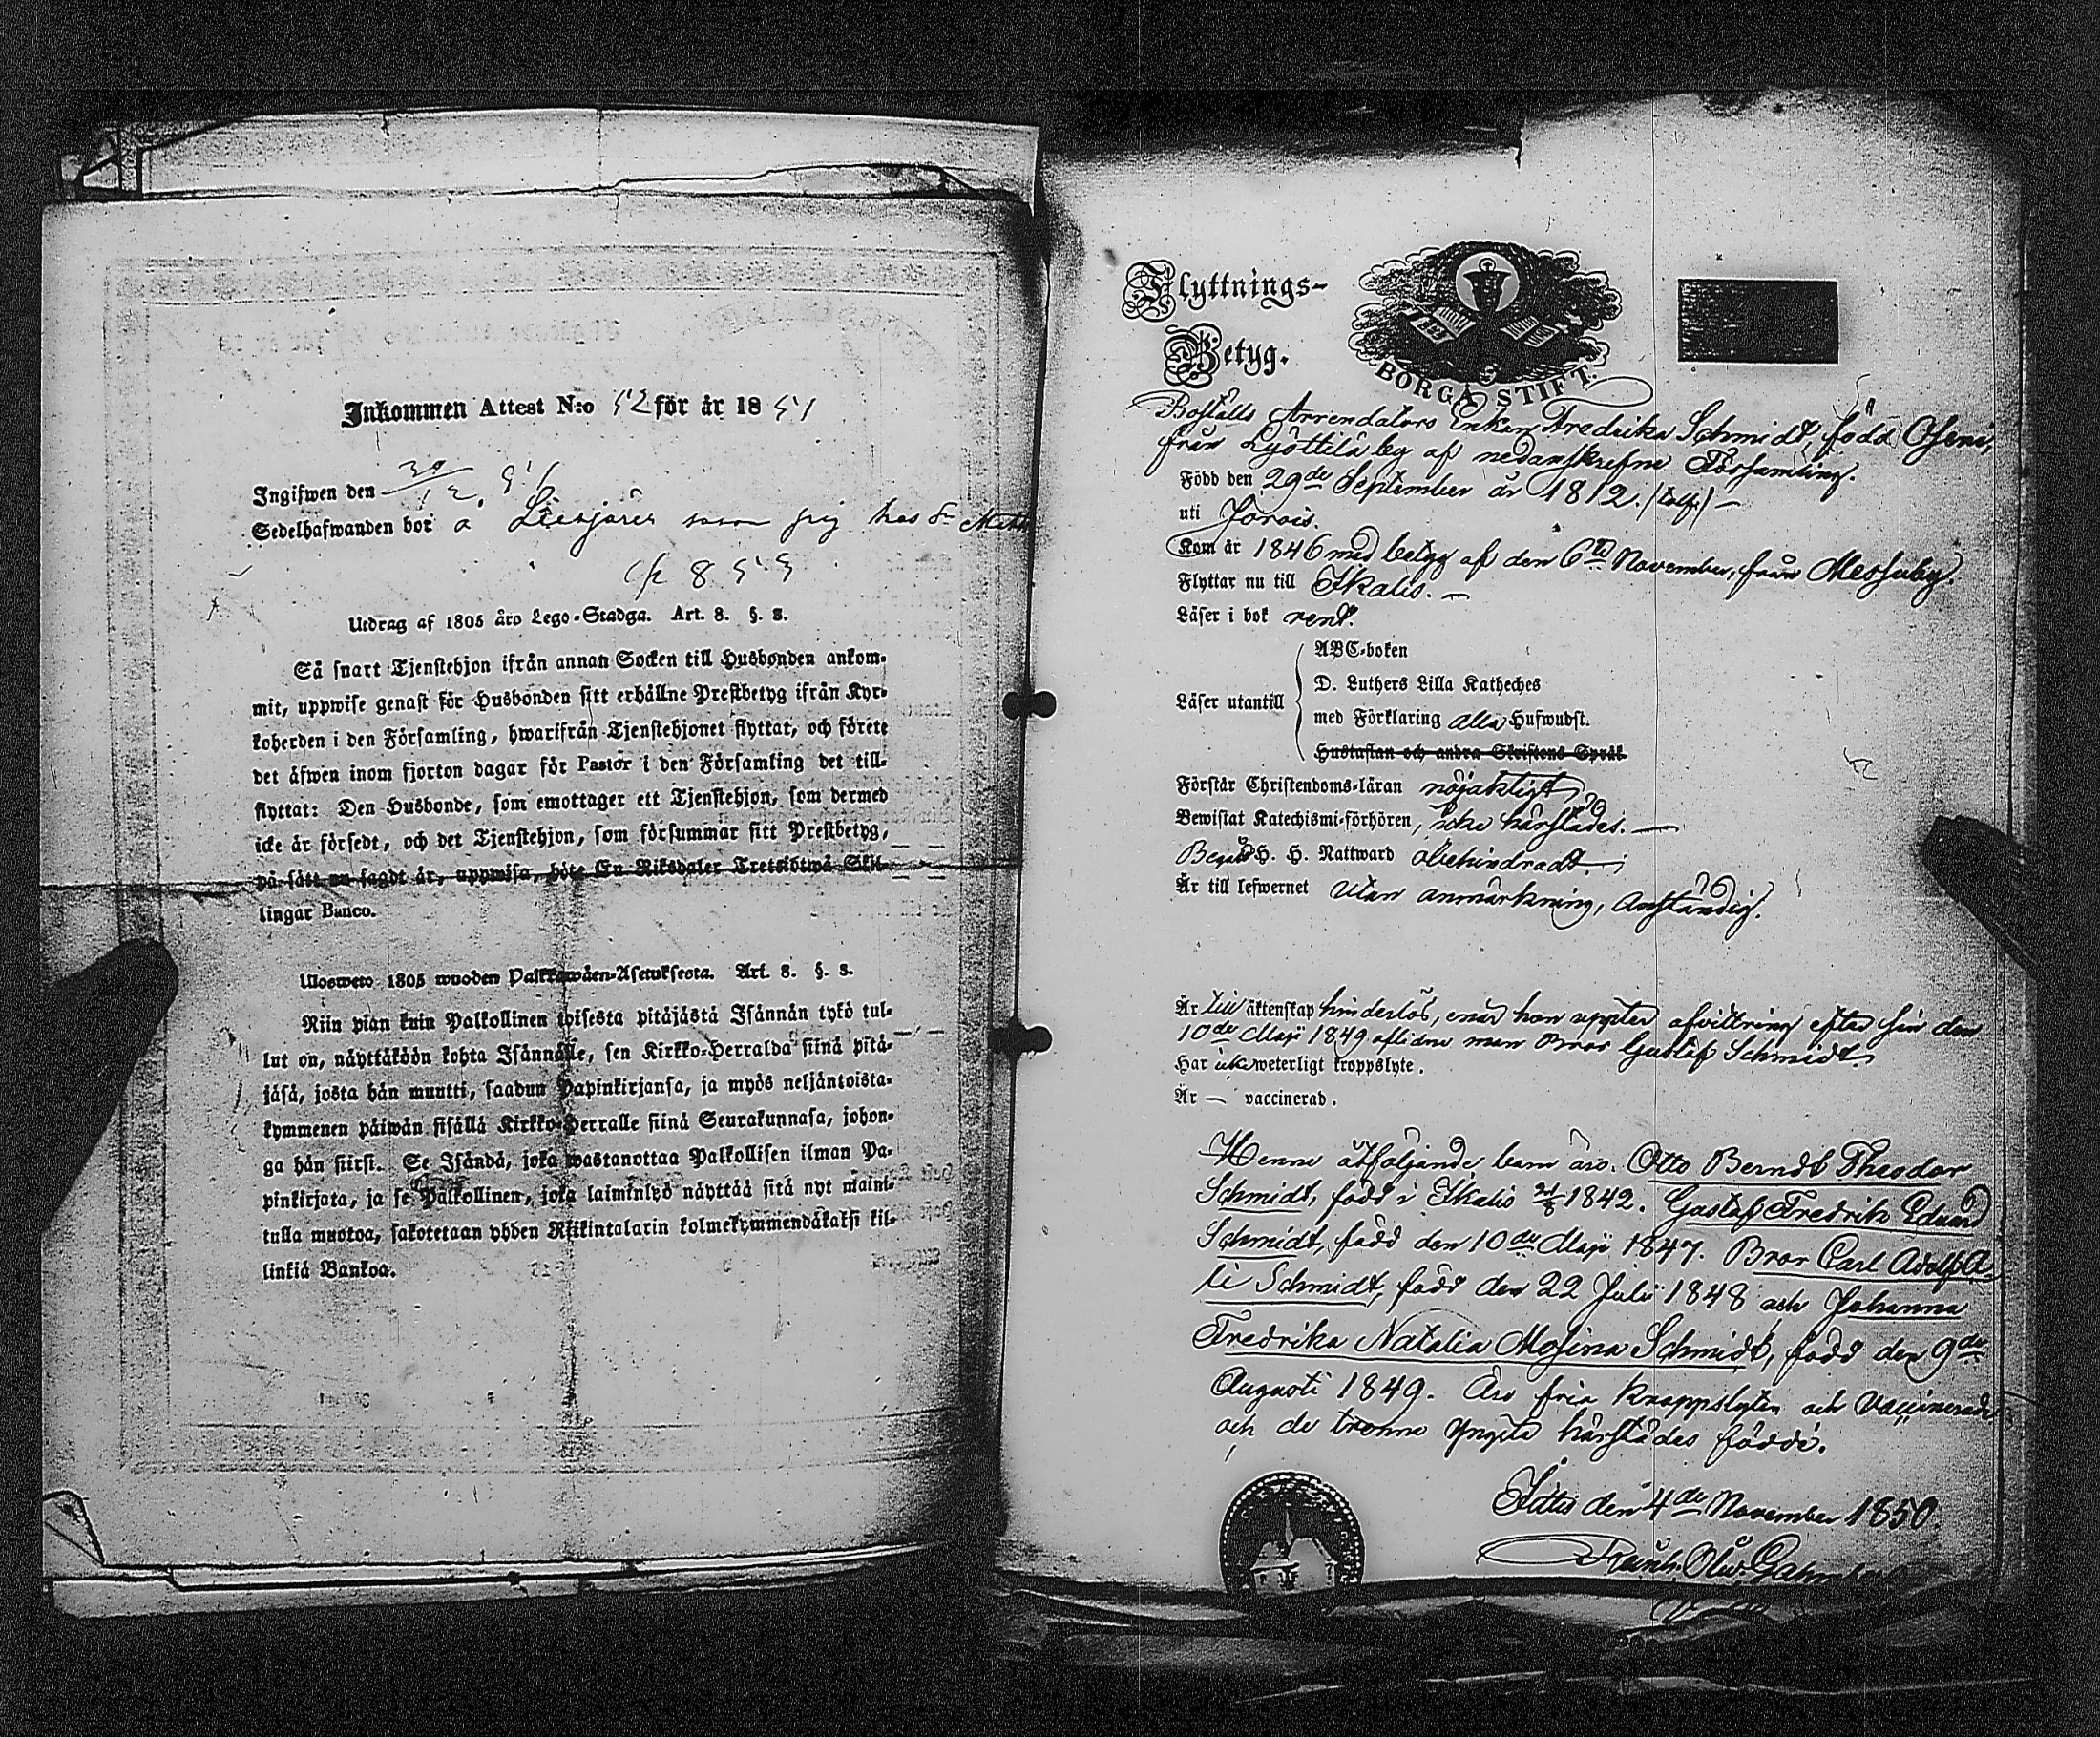 Inkommen Attest N:o 52 för år 1851
Ingifwen den 30/12 51
Sedelhafwanden bor å
8 5 3
Utdrag af 1805 års Lego-Stadga. Art. 8. §. 3.
Så snart Tjenstehjon ifrån annan Socken till Husbonden ankom-
mit, uppwise genast för Husbonden sitt erhållne Prestbetyg ifrån Kyr-
koherden i den Församling, hwarifrån Tjenstehjonet flyttat, och förete
det äfwen inom fjorton dagar för Pastor i den Församling det till-
flyttat: Den Husbonde, som emottager ett Tjenstehjon, som dermed
icke är försedt, och det Tjenstehjon, som försummar sitt Prestbetyg,
på sätt nu sagdt är, uppwisa, böte En Riksdaler Tretiotwå Skil-
lingar Banco.
Ulosweto 1805 wuoden Palkkawäen-Asetuksesta. Art. 8. §. 3.
Niin pian kuin Palkollinen toisesta pitäjästä Isännän tykö tul-
lut on, näyttäköön kohta Isännälle, sen Kirkko-Herralda siinä pitä-
jäsä, josta hän muutti, saadun Papinkirjansa, ja myös neljäntoista-
kymmenen päiwän sisällä Kirkko-Herralle siinä Seurakunnasa, johon-
ga hän siirsi. Se Isändä, joka wastanottaa Palkollisen ilman Pa-
pinkirjata, ja se Palkollinen, joka laiminlyö näyttää sitä nyt maini-
tulla muotoa, sakotetaan yhden Riikintalarin kolmekymmendäkaksi kil-
linkiä Bankoa.
Flyttnings-
Betyg.
BORGÅ STIFT.
Boställs Arrendators Enkan Fredrika Schmidt, född
från Lyöttilä by af nedanskrefne Församling.
Född den 29de September år 1812. /tolf/ —
uti Jorois.
Kom år 1846 med betyg af den 6te November, från Messuby.
Flyttar nu till Ikalis. —
Läser i bok rent.
Läser utantill
ABC-boken
D. Luthers Lilla Katheches
med Förklaring alla Hufwudst.
Hustaflan och andra Skriftens Språk
Förstår Christendoms-läran nöjaktigt
Bewistat Katechismi-förhören, icke härstädes. —
Begått H. H. Nattward obehindradt. —
Är till lefwernet utan anmärkning, Anständig.
Är till äktenskap hinderlös, enär hon uppter afvittring efter sin den
10de Maji 1849 aflidne man Bror Gustaf Schmidt.
Har icke weterligt kroppslyte.
Är — vaccinerad.
Henne åtföljande barn äro. Otto Berndt Theodor
Schmidt, född i Ikalis 1842. Gustaf Fredrik Eduard
Schmidt, född den 10de Maji 1847. Bror Carl Adolf A-
li Schmidt, född den 22 Julii 1848 och Johanna
Fredrika Natalia Mosina Schmidt, född den 9de
Augusti 1849. Äro fria kroppslyten och vaccinerade
och de trenne yngsta härstädes födde.
Iittis den 4de November 1850